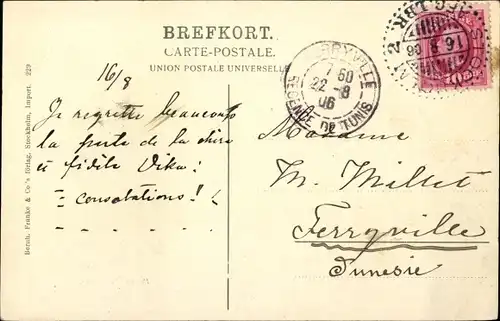 BREFKORT.
CARTE-POSTALE.
UNION POSTALE UNIVERSELLE
16/8
Je regrette beaucoup
la perte de la chère
et fidèle Vika!
= consolations! (
Madame
M. Millet
Ferryville
Tunesie
RYVILLE
7 60
22 -8
06
REGENCE DE TUNIS
STOCK
16 8 06
2
10
Bernh. Franke & Co's förlag, Stockholm, Import. 229